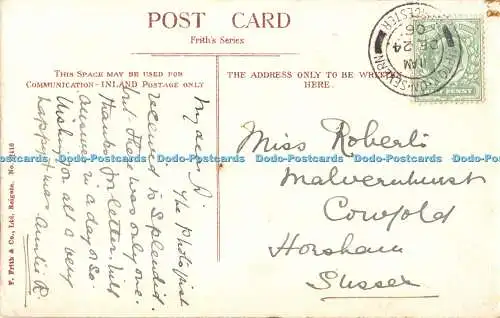 POST CARD
Frith's Series
THIS SPACE MAY BE USED FOR
COMMUNICATION—INLAND POSTAGE ONLY
THE ADDRESS ONLY TO BE WRITTEN
HERE.
My dear D.
The photo just
received is splendid.
but there was only one.
Thanks for letter. Will
answer in a day or so.
Wishing you all a very
happy Xmas Auntie R.
Miss Roberts
Malvernhurst
Cowfold
Horsham
Sussex
UPTON-ON-SEVERN
WORCESTER
11 AM
DE 24
06
PENNY
F. Frith & Co., Ltd. Reigate. No.
Dodo-Postcards Dodo-Postcards Dodo-Postcards Dodo-Postcards Dodo-Postcards